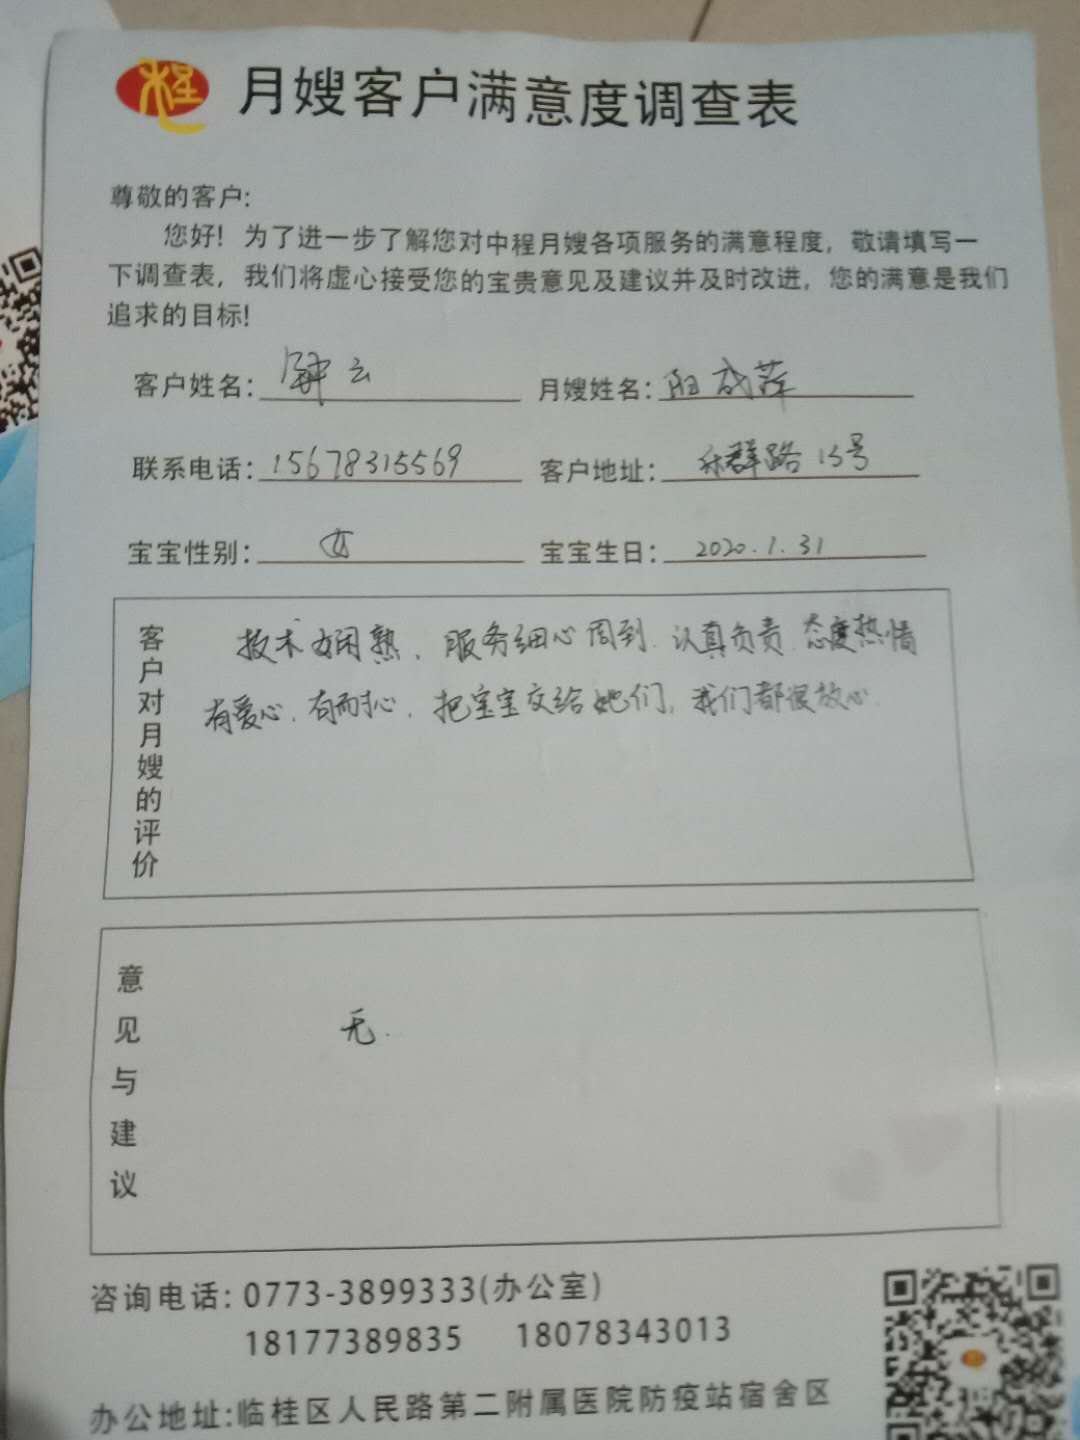 程
月嫂客户满意度调查表
尊敬的客户:
您好！为了进一步了解您对中程月嫂各项服务的满意程度，敬请填写一
下调查表，我们将虚心接受您的宝贵意见及建议并及时改进，您的满意是我们
追求的目标!
客户姓名: 云 月嫂姓名: 阳成萍
联系电话: 15678315569 客户地址: 乐群路 15号
宝宝性别: 女 宝宝生日: 2020.1.31
客户对月嫂的评价
技术娴熟、服务细心周到.认真负责.态度热情
有爱心.有耐心.把宝宝交给她们,我们都很放心.
意见与建议
无.
咨询电话: 0773-3899333(办公室)
18177389835 18078343013
办公地址:临桂区人民路第二附属医院防疫站宿舍区